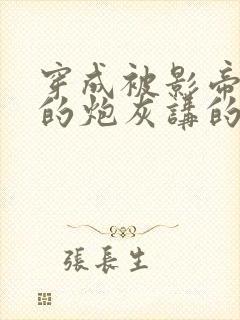 穿成被影帝
的炮灰講的
張長生